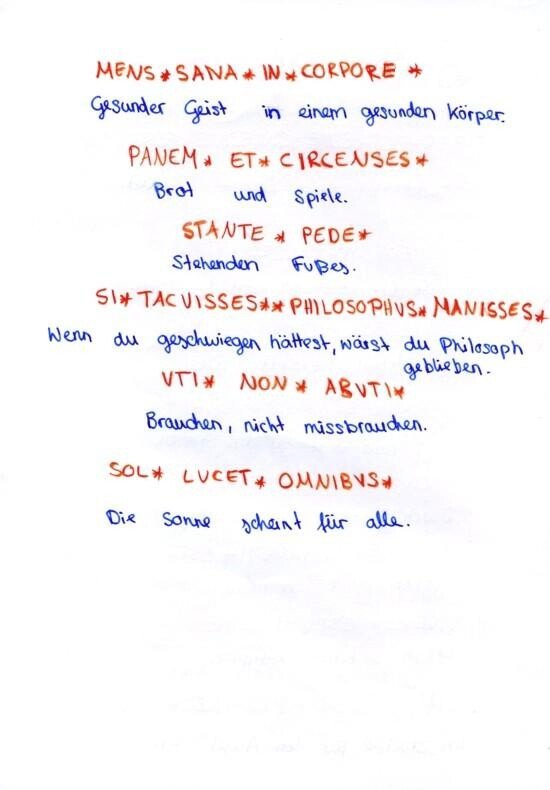 MENS * SANA * IN * CORPORE *
Gesunder Geist in einem gesunden Körper.
PANEM * ET * CIRCENSES *
Brot und Spiele.
STANTE * PEDE *
Stehenden Fußes.
SI * TACVISSES ** PHILOSOPHVS * MANISSES *
Wenn du geschwiegen hättest, wärst du Philosoph
geblieben.
VTI * NON * ABVTI *
Brauchen, nicht missbrauchen.
SOL * LVCET * OMNIBVS *
Die Sonne scheint für alle.